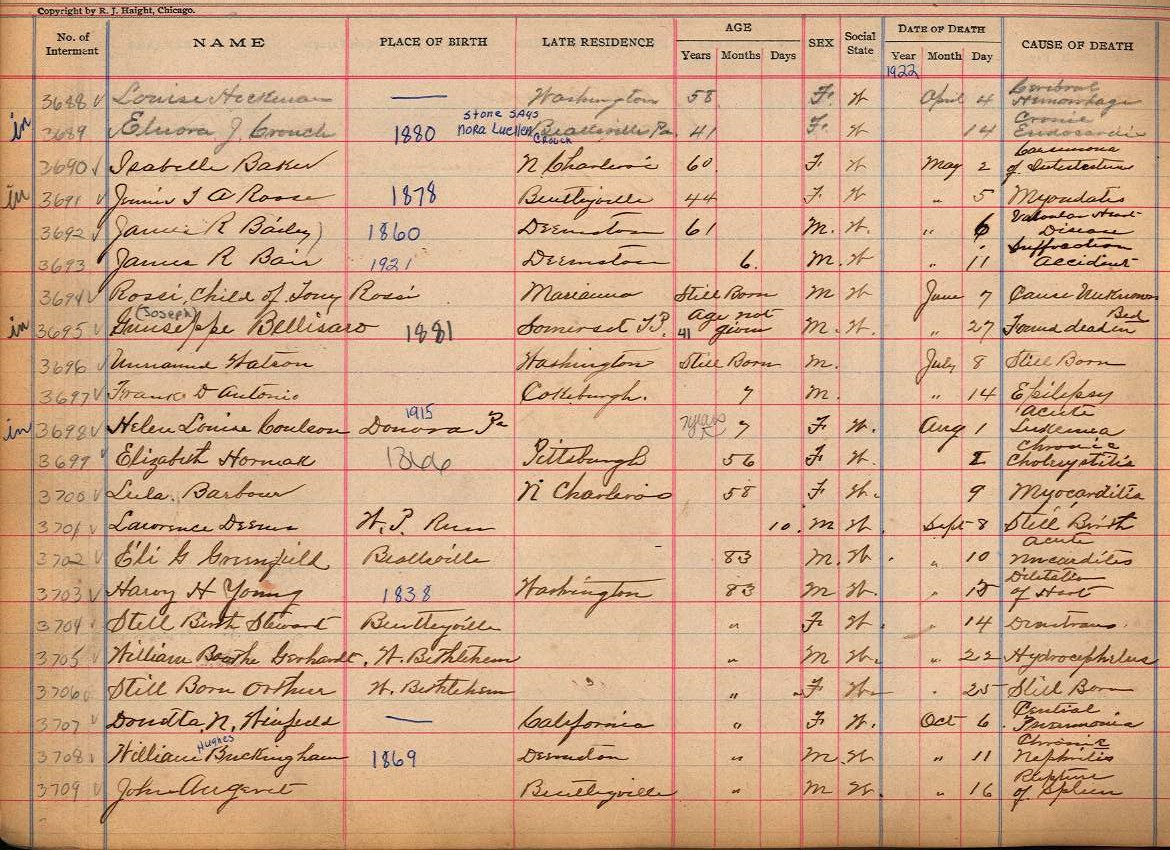 Copyright by R. J. Haight, Chicago.
No. of Interment NAME PLACE OF BIRTH LATE RESIDENCE AGE SEX Social State DATE OF DEATH CAUSE OF DEATH
Years Months Days Year Month Day
1922
3688 Louise Heckman — Washington 58 F. W April 4 Cerebral Hemorrhage
stone SAys
in 3689 Elnora J. Crouch 1880 Nora Luellen Crouch Beallsville Pa. 41 F. W 14 Cronic Endocardis
3690 Isabelle Baker N Charleroi 60 F W May 2 Carcinoma of Intestines
in 3691 T A Rosse 1878 Bentleyville 44 F W " 5
3692 James R Bailey 1860 Deemston 61 M. W. " 6 Valvular Heart Disease
3693 James R Bair 1921 Deemston 6. M. W. " 11 Suffocation accident
3694 Rossi, Child of Tony Rossi Marianna Still Born M W June 7 Cause Unknown
(Joseph)
in 3695 Guiseppe Bellisaro 1881 Somerset TP. 41 age not given M. W. " 27 Found dead in Bed
3696 Unnamed Watson Washington Still Born M. July 8 Still Born
3697 Frank D Antonio Cokeburgh. 7 M. " 14 Epilepsy
1915
in 3698 Helen Louise Coulson Donora Pa 7 years 7 F W. Aug 1 acute Lukemea
3699 Elizabeth Hormak 1866 Pittsburgh 56 F W. Chronic
3700 Lula Barbour N Charleroi 58 F W. 9 Myocarditis
3701 Lawrence Deems W. P. Run 10. M W. Sept 8 Still Birth
3702 Eli G Greenfield Beallsville 83 M. W. " 10 acute
3703 Harvy H Young 1838 Washington 83 M W. " 15 Dilitation of Hart
3704 Still Birth Stewart Bentleyville " F W. " 14
3705 William Gerhardt, W. Bethlehem " M W. " 22 Hydrocephelus
3706 Still Born W. Bethlehem " F W 25 Still Born
3707 Donetta N. Winfield — California " F W. Oct 6 Pneumonia
Hughes
3708 William Buckingham 1869 Deemston " M W. " 11 Chronic Nephritis
3709 John Bentleyville " M W. " 16 of Spleen